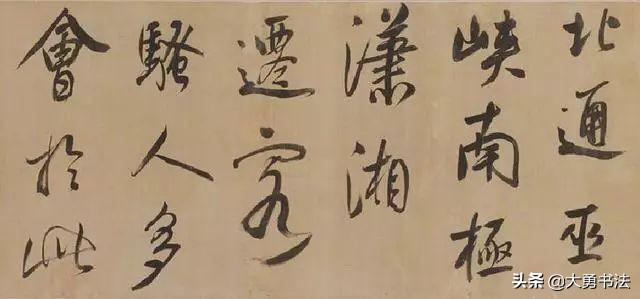 北通巫
峽南極
瀟湘
遷客
騷人多
會於此
头条 @大勇书法